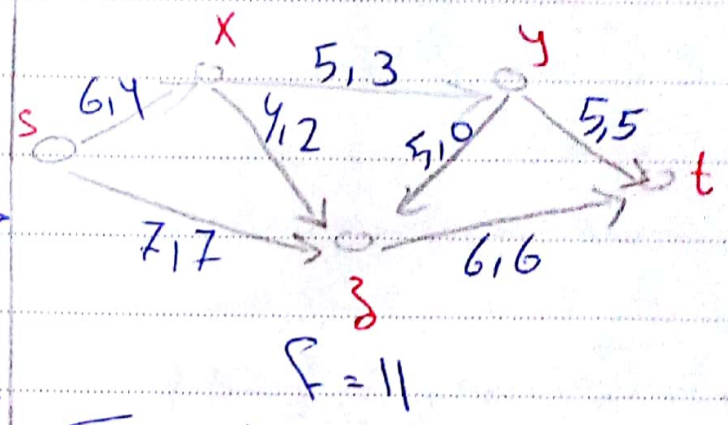 x
y
5,3
6,4
s
4,2
5,0
5,5
t
7,7
6,6
z
f = 11